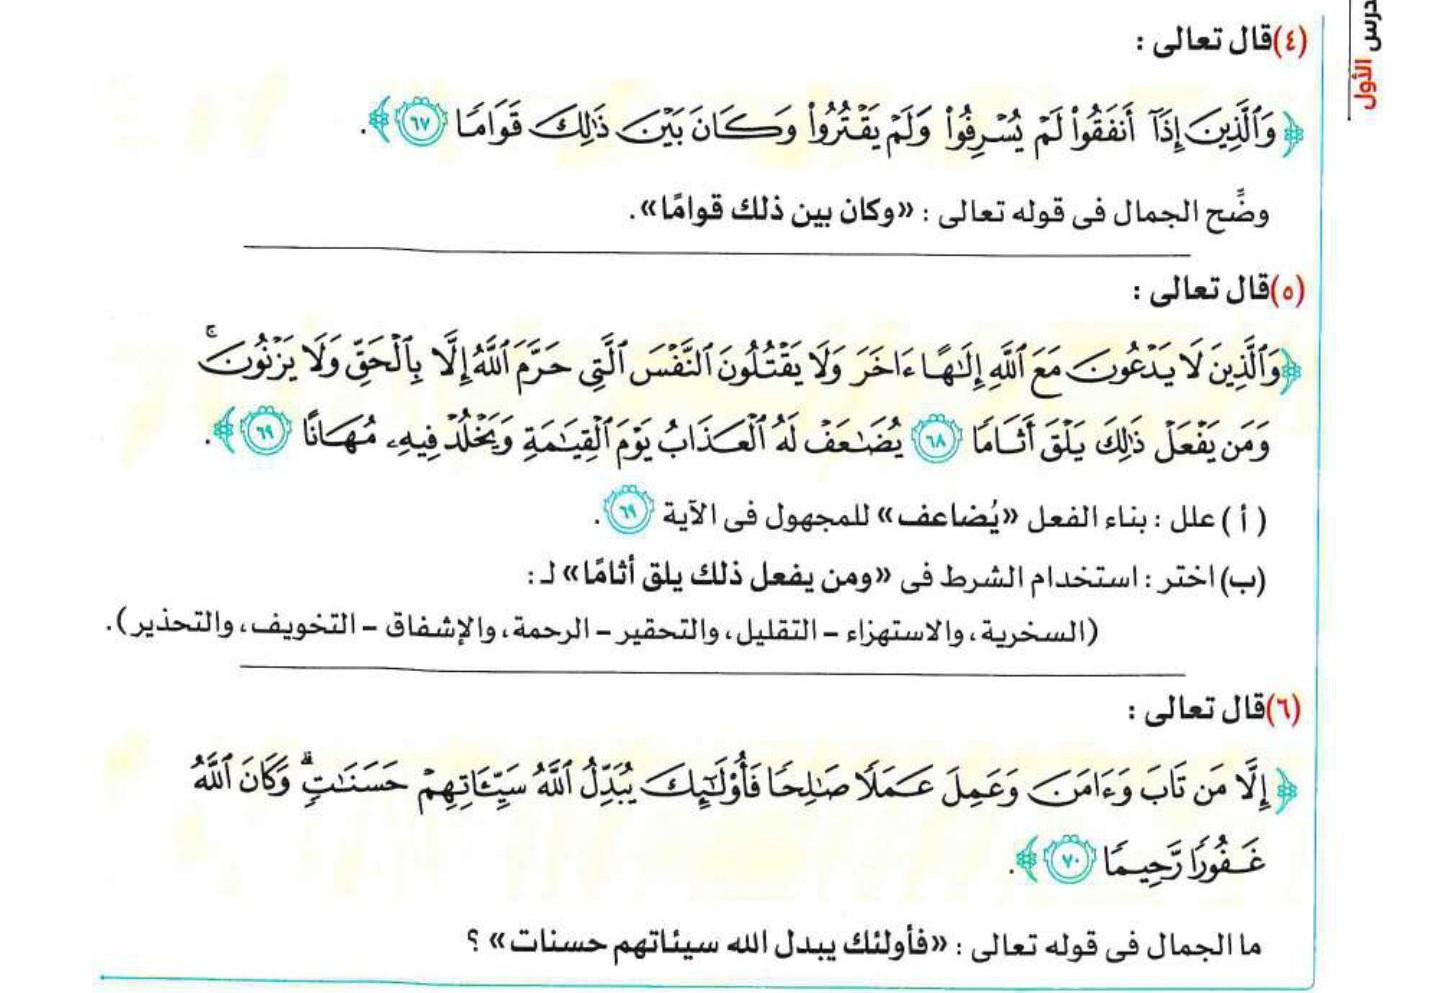 درس الأول
(٤) قال تعالى :
﴿ وَٱلَّذِينَ إِذَآ أَنفَقُواْ لَمْ يُسْرِفُواْ وَلَمْ يَقْتُرُواْ وَكَانَ بَيْنَ ذَٰلِكَ قَوَامٗا ٦٧ ﴾.
وضِّح الجمال فى قوله تعالى : «وكان بين ذلك قوامًا».
(٥) قال تعالى :
﴿ وَٱلَّذِينَ لَا يَدْعُونَ مَعَ ٱللَّهِ إِلَٰهًا ءَاخَرَ وَلَا يَقْتُلُونَ ٱلنَّفْسَ ٱلَّتِي حَرَّمَ ٱللَّهُ إِلَّا بِٱلْحَقِّ وَلَا يَزْنُونَۚ
وَمَن يَفْعَلْ ذَٰلِكَ يَلْقَ أَثَامٗا ٦٨ يُضَٰعَفْ لَهُ ٱلْعَذَابُ يَوْمَ ٱلْقِيَٰمَةِ وَيَخْلُدْ فِيهِۦ مُهَانًا ٦٩ ﴾.
( أ ) علل : بناء الفعل «يُضاعف» للمجهول فى الآية ٦٩ .
(ب) اختر : استخدام الشرط فى «ومن يفعل ذلك يلق أثامًا» لـ :
(السخرية، والاستهزاء – التقليل، والتحقير – الرحمة، والإشفاق – التخويف، والتحذير).
(٦) قال تعالى :
﴿ إِلَّا مَن تَابَ وَءَامَنَ وَعَمِلَ عَمَلٗا صَٰلِحٗا فَأُوْلَٰٓئِكَ يُبَدِّلُ ٱللَّهُ سَيِّـَٔاتِهِمْ حَسَنَٰتٖۗ وَكَانَ ٱللَّهُ
غَفُورٗا رَّحِيمٗا ٧٠ ﴾.
ما الجمال فى قوله تعالى : «فأولئك يبدل الله سيئاتهم حسنات» ؟